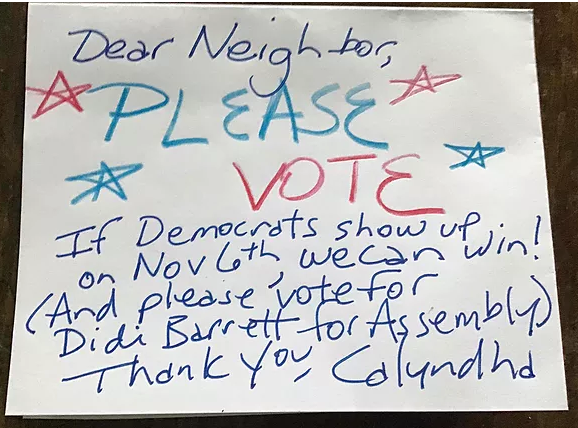 Dear Neighbor,
PLEASE
VOTE
If Democrats show up
on Nov 6th, we can win!
(And please vote for
Didi Barrett for Assembly)
Thank You, Calyndha